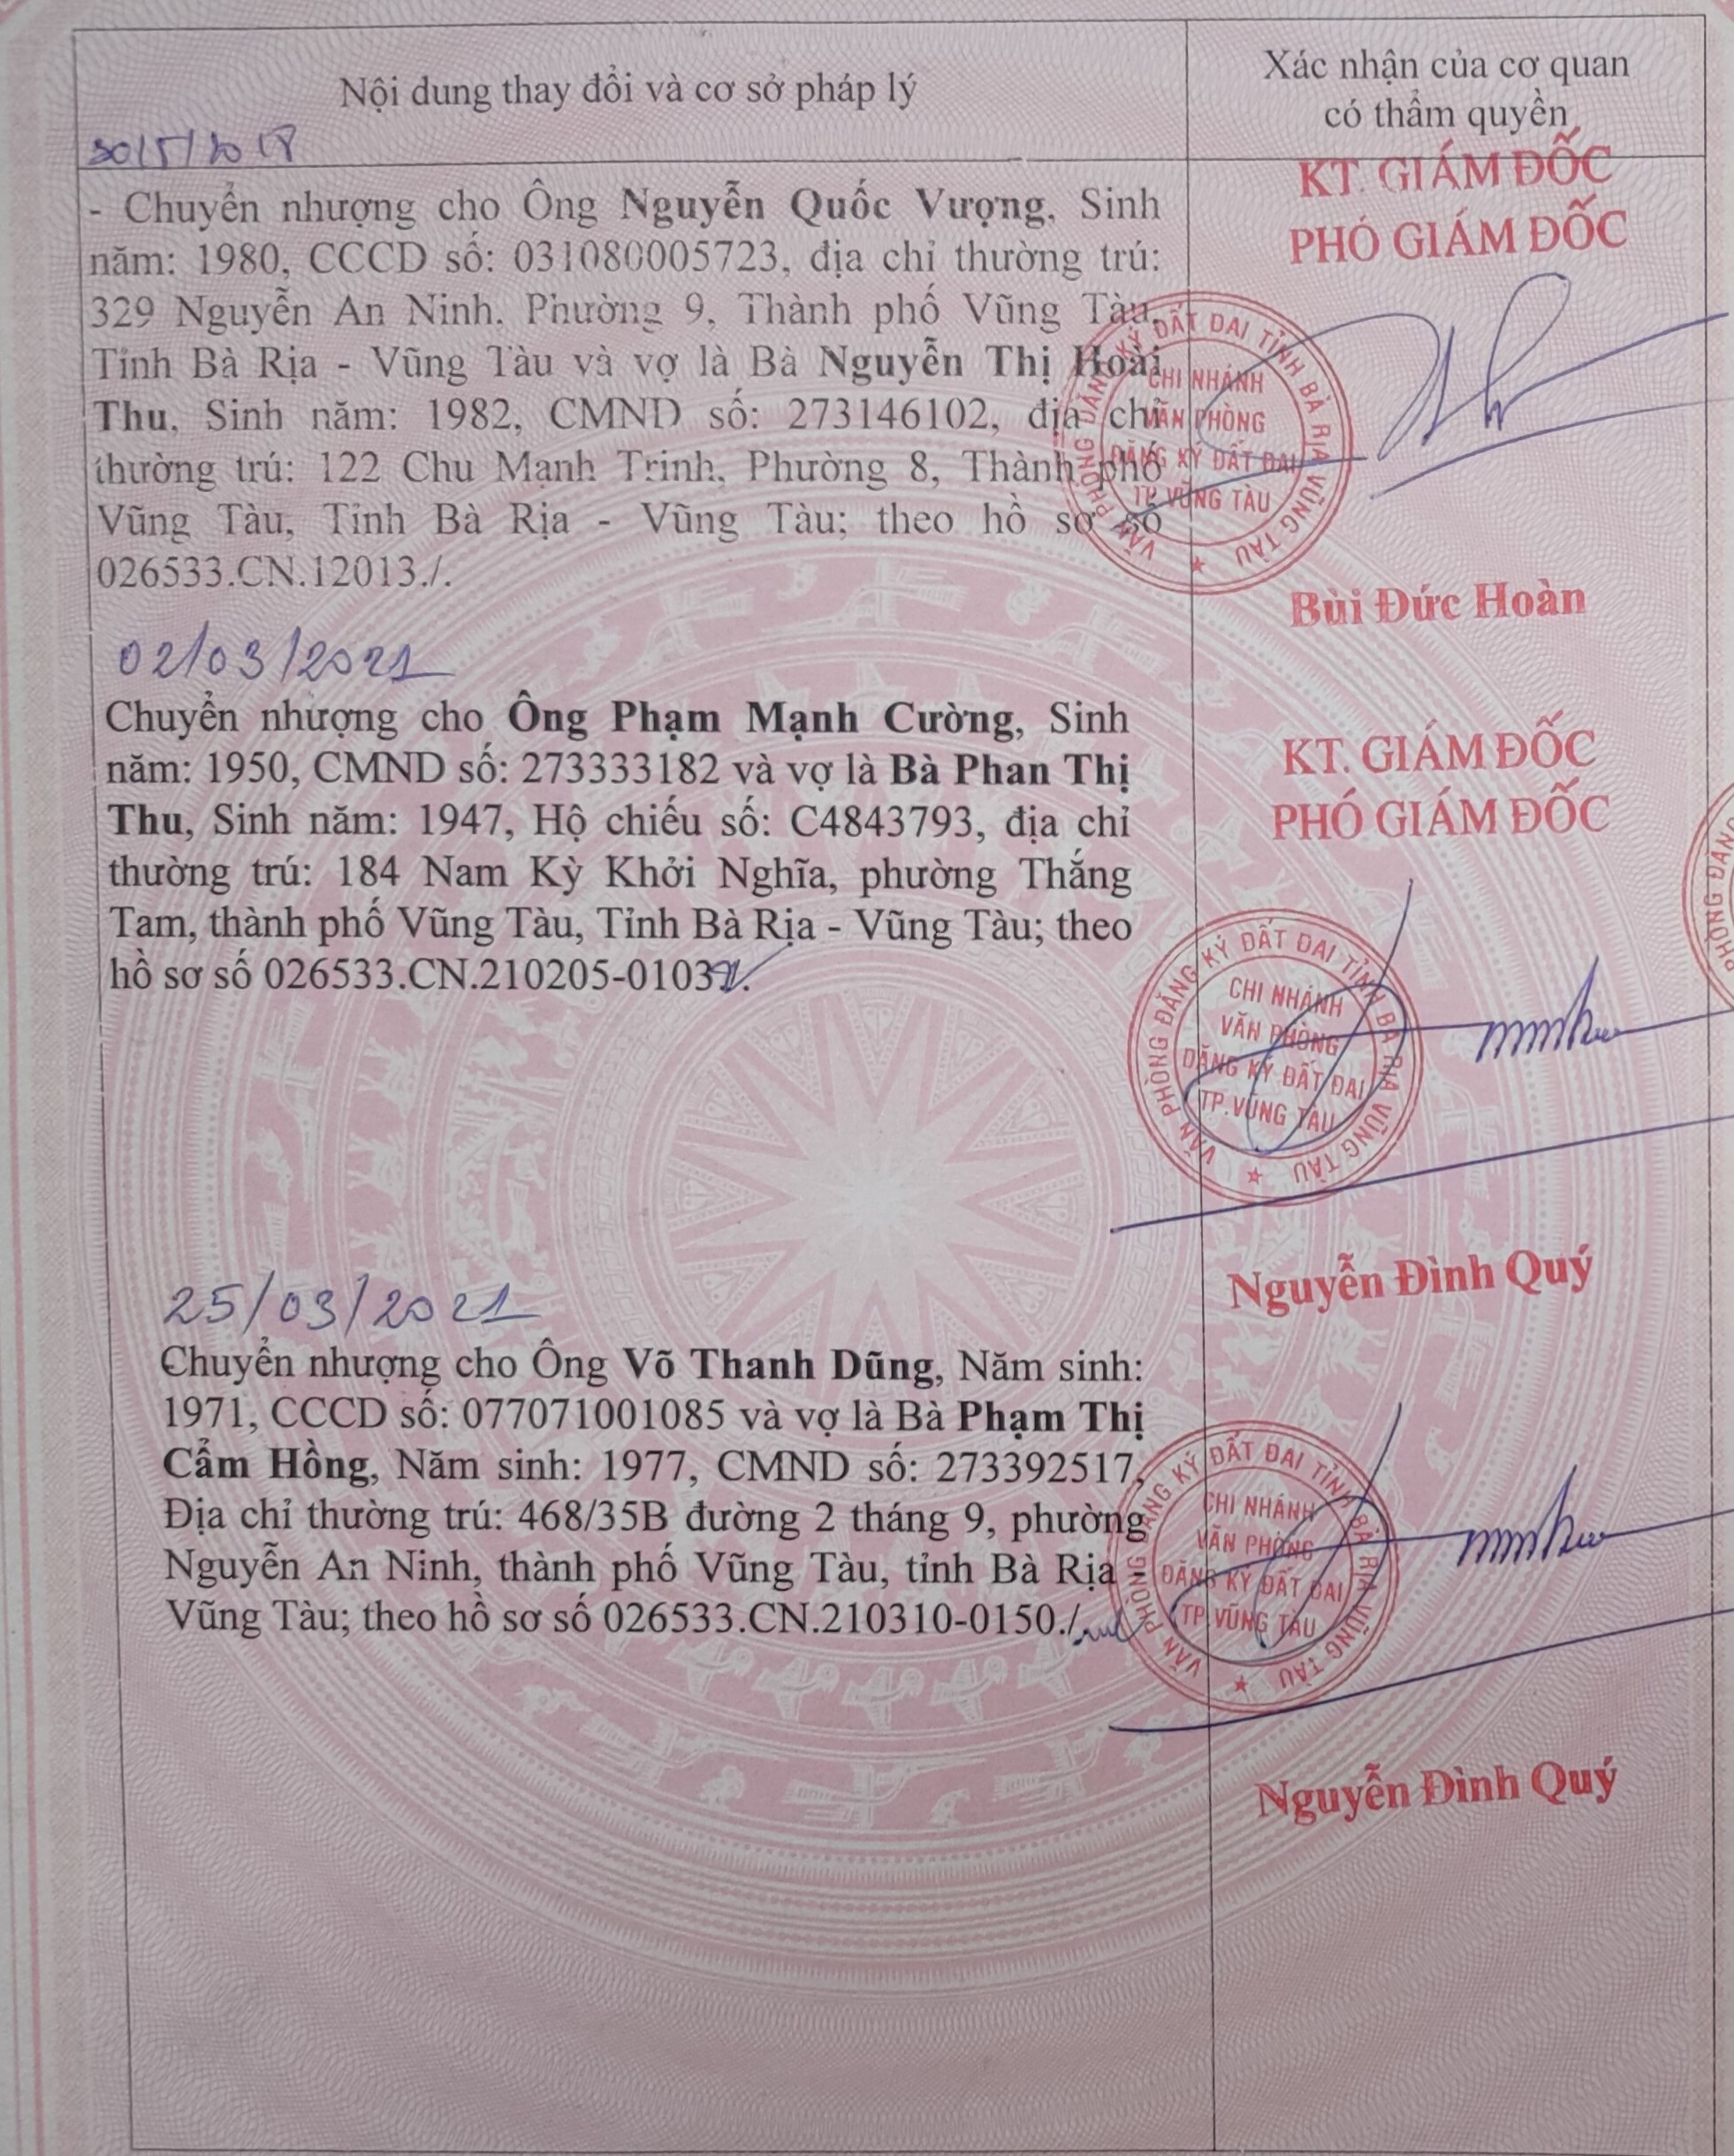 Nội dung thay đổi và cơ sở pháp lý
Xác nhận của cơ quan
có thẩm quyền
30/5/2018
KT. GIÁM ĐỐC
PHÓ GIÁM ĐỐC
- Chuyển nhượng cho Ông Nguyễn Quốc Vượng, Sinh
năm: 1980, CCCD số: 031080005723, địa chỉ thường trú:
329 Nguyễn An Ninh, Phường 9, Thành phố Vũng Tàu,
Tỉnh Bà Rịa - Vũng Tàu và vợ là Bà Nguyễn Thị Hoài
Thu, Sinh năm: 1982, CMND số: 273146102, địa chỉ
thường trú: 122 Chu Mạnh Trinh, Phường 8, Thành phố
Vũng Tàu, Tỉnh Bà Rịa - Vũng Tàu; theo hồ sơ số
026533.CN.12013./.
VĂN PHÒNG ĐĂNG KÝ ĐẤT ĐAI TỈNH BÀ RỊA VŨNG TÀU
CHI NHÁNH
VĂN PHÒNG
ĐĂNG KÝ ĐẤT ĐAI
TP.VŨNG TÀU
Bùi Đức Hoàn
02/03/2021
Chuyển nhượng cho Ông Phạm Mạnh Cường, Sinh
năm: 1950, CMND số: 273333182 và vợ là Bà Phan Thị
Thu, Sinh năm: 1947, Hộ chiếu số: C4843793, địa chỉ
thường trú: 184 Nam Kỳ Khởi Nghĩa, phường Thắng
Tam, thành phố Vũng Tàu, Tỉnh Bà Rịa - Vũng Tàu; theo
hồ sơ số
KT. GIÁM ĐỐC
PHÓ GIÁM ĐỐC
VĂN PHÒNG ĐĂNG KÝ ĐẤT ĐAI TỈNH BÀ RỊA VŨNG TÀU
CHI NHÁNH
VĂN PHÒNG
ĐĂNG KÝ ĐẤT ĐAI
TP.VŨNG TÀU
PHÒNG ĐĂNG
Nguyễn Đình Quý
25/03/2021
Chuyển nhượng cho Ông Võ Thanh Dũng, Năm sinh:
1971, CCCD số: 077071001085 và vợ là Bà Phạm Thị
Cẩm Hồng, Năm sinh: 1977, CMND số: 273392517,
Địa chỉ thường trú: 468/35B đường 2 tháng 9, phường
Nguyễn An Ninh, thành phố Vũng Tàu, tỉnh Bà Rịa -
Vũng Tàu; theo hồ sơ số 026533.CN.210310-0150./.
VĂN PHÒNG ĐĂNG KÝ ĐẤT ĐAI TỈNH BÀ RỊA VŨNG TÀU
CHI NHÁNH
VĂN PHÒNG
ĐĂNG KÝ ĐẤT ĐAI
TP.VŨNG TÀU
Nguyễn Đình Quý